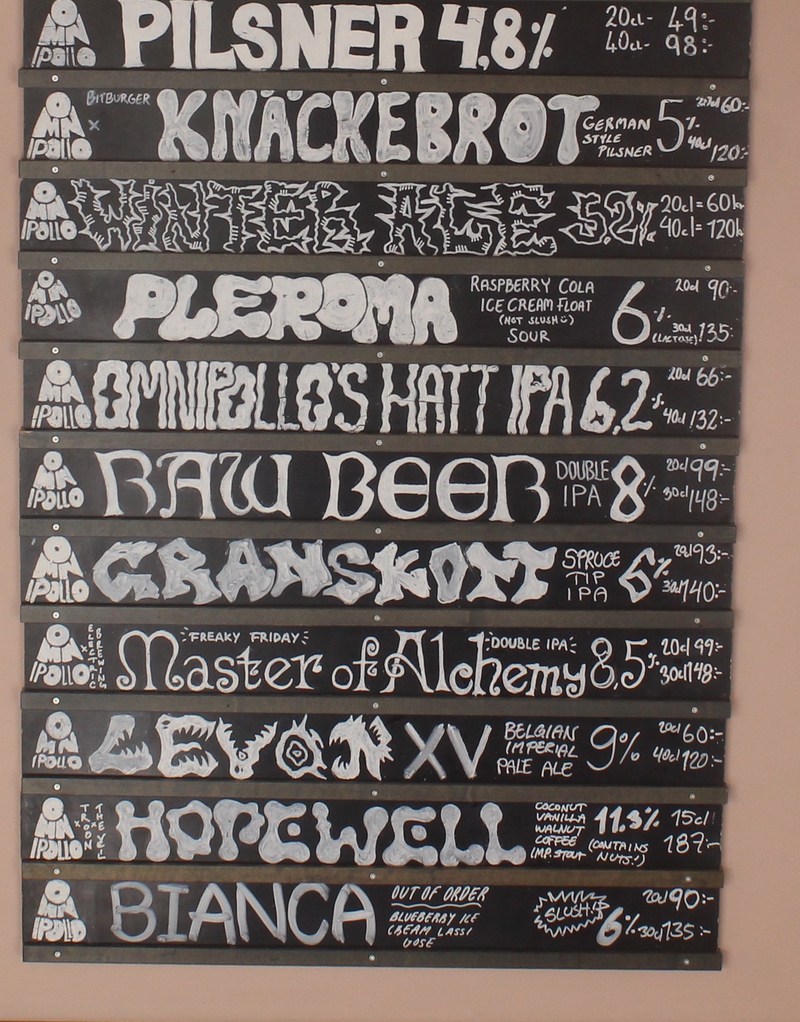 OMNIPOLLO PILSNER 4,8% 20cl- 49:-
40cl- 98:-
OMNIPOLLO BITBURGER X KNÄCKEBROT GERMAN STYLE PILSNER 5% 60:-
40cl 120:-
OMNIPOLLO WINTER ALE 5,2% 20cl = 60kr
40cl = 120kr
OMNIPOLLO PLEROMA RASPBERRY COLA 6% 20cl 90:-
ICE CREAM FLOAT
(NOT SLUSH :)
SOUR (LACTOSE) 30cl 135:-
OMNIPOLLO OMNIPOLLO'S HATT IPA 6,2% 20cl 66:-
40cl 132:-
OMNIPOLLO RAW BEER DOUBLE IPA 8% 20cl 99:-
30cl 148:-
OMNIPOLLO GRANSKOTT SPRUCE TIP IPA 6% 20cl 93:-
30cl 140:-
OMNIPOLLO X ELECTRIC BREWING FREAKY FRIDAY Master of Alchemy DOUBLE IPA 8,5% 20cl 99:-
30cl 148:-
OMNIPOLLO LEVON XV BELGIAN IMPERIAL PALE ALE 9% 20cl 60:-
40cl 120:-
OMNIPOLLO X TROON X THE VEIL HOPEWELL COCONUT VANILLA WALNUT COFFEE IMP. STOUT 11.3% (CONTAINS NUTS!) 15cl
187:-
OMNIPOLLO BIANCA OUT OF ORDER SLUSH 6% 20cl 90:-
BLUEBERRY ICE
CREAM LASSI
GOSE 30cl 135:-